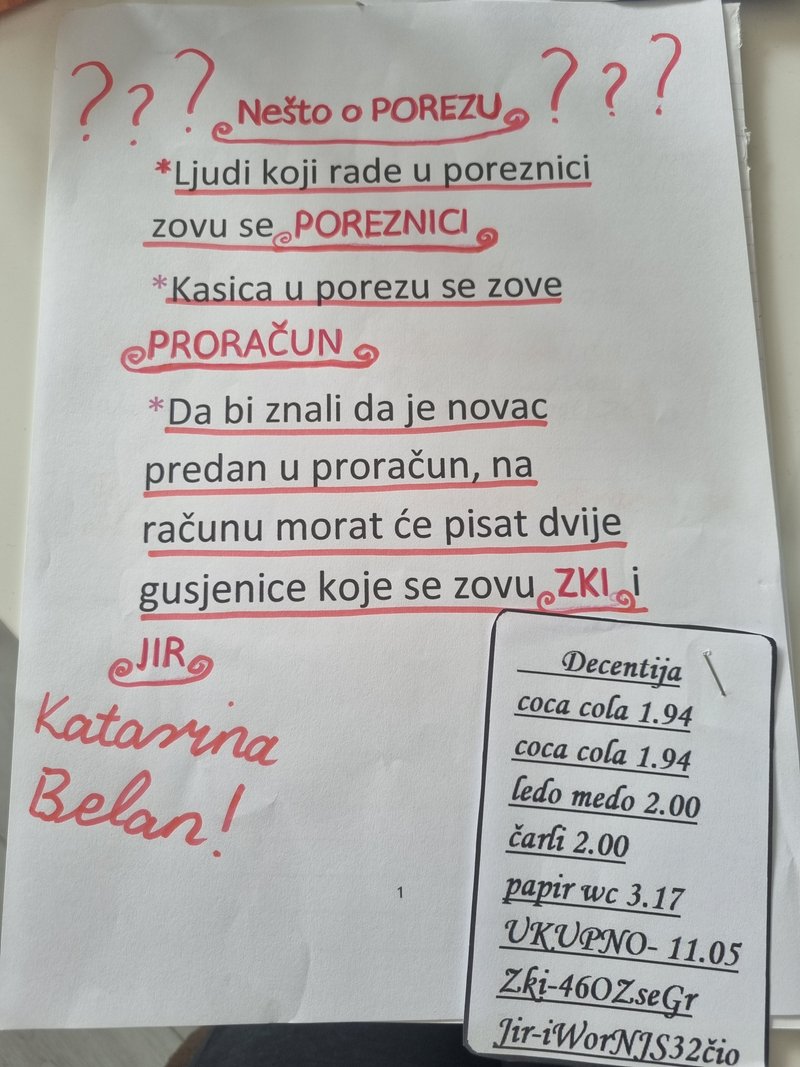 ? ? ? Nešto o POREZU ? ? ?
*Ljudi koji rade u poreznici
zovu se POREZNICI
*Kasica u porezu se zove
PRORAČUN
*Da bi znali da je novac
predan u proračun, na
računu morat će pisat dvije
gusjenice koje se zovu ZKI i
JIR
Katarina
Belan!
1
Decentija
coca cola 1.94
coca cola 1.94
ledo medo 2.00
čarli 2.00
papir wc 3.17
UKUPNO- 11.05
Zki-46OZseGr
Jir-iWorNJS32čio